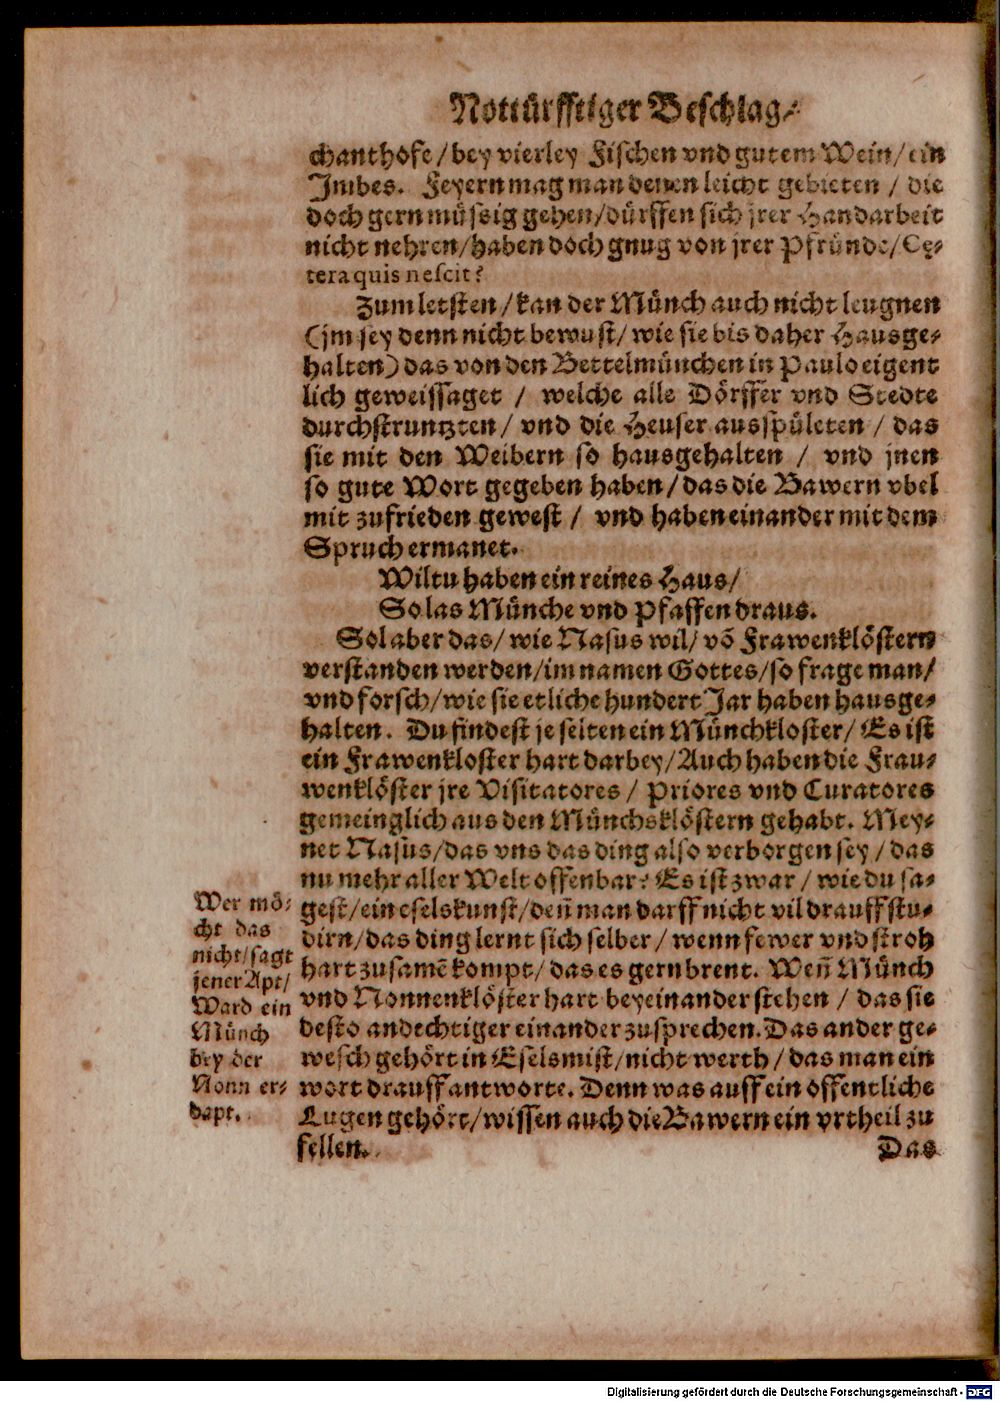 Nottürfftiger Beschlag/
chanthofe/bey vierley Fischen vnd gutem Wein/ein
Jmbes. Feyern mag man denen leicht gebieten / die
doch gern müssig gehen/dürffen sich jrer Handarbeit
nicht nehren/haben doch gnug von jrer Pfründe/Cę-
tera quis nescit?
Zum letsten/kan der Münch auch nicht leugnen
(jm sey denn nicht bewust/wie sie bis daher Hausge-
halten) das von den Bettelmünchen in Paulo eigent
lich geweissaget / welche alle Dörffer vnd Stedte
durchstruntzten/ vnd die Heuser ausspületen / das
sie mit den Weibern so hausgehalten / vnd jnen
so gute Wort gegeben haben/das die Bawern vbel
mit zufrieden gewest / vnd haben einander mit dem
Spruch ermanet.
Wiltu haben ein reines Haus/
So las Münche vnd Pfaffen draus.
Sol aber das/wie Nasus wil/võ Frawenklöstern
verstanden werden/im namen Gottes/so frage man/
vnd forsch/wie sie etliche hundert Jar haben hausge-
halten. Du findest je selten ein Münchkloster/Es ist
ein Frawenkloster hart darbey/Auch haben die Frau-
wenklöster jre Visitatores/ Priores vnd Curatores
gemeinglich aus den Münchsklöstern gehabt. Mey-
net Nasus/das vns das ding also verborgen sey/das
nu mehr aller Welt offenbar? Es ist zwar/wie du sa-
gest/ein eselskunst/deñ man darff nicht vil drauff stu-
dirn/das ding lernt sich selber/wenn fewer vnd stroh
hart zusamẽ kompt/das es gern brent. Weñ Münch
vnd Nonnenklöster hart beyeinander stehen / das sie
desto andechtiger einander zusprechen. Das ander ge-
wesch gehört in Eselsmist/nicht werth/das man ein
wort drauff antworte. Denn was auff ein offentliche
Lugen gehört/wissen auch die Bawern ein vrtheil zu
fellen.
Das
Wer mö-
cht das
nicht/sagt
jener Apt/
Ward ein
Münch
bey der
Nonn er-
dapt.
Digitalisierung gefördert durch die Deutsche Forschungsgemeinschaft - DFG